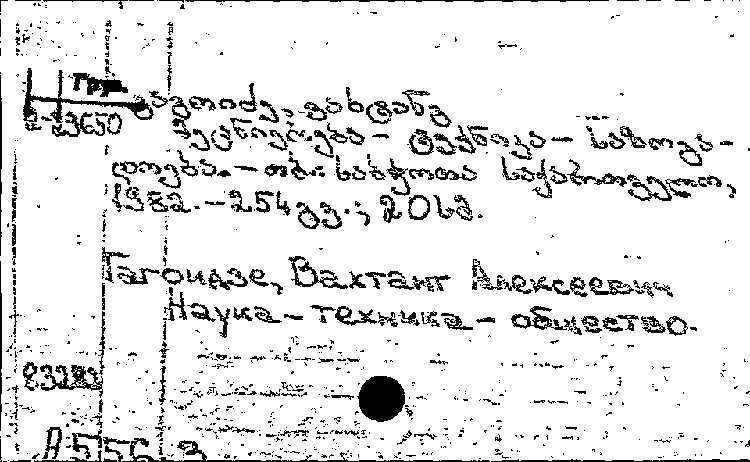 Груз.
გაგოიძე, ვახტანგ
მეცნიერება – ტექნიკა – საზოგა-
დოება. – თბ.: საბჭოთა საქართველო,
1982. – 254 გვ.; 20 სმ.
Гагоидзе, Вахтанг Алексеевич
Наука – техника – общество.